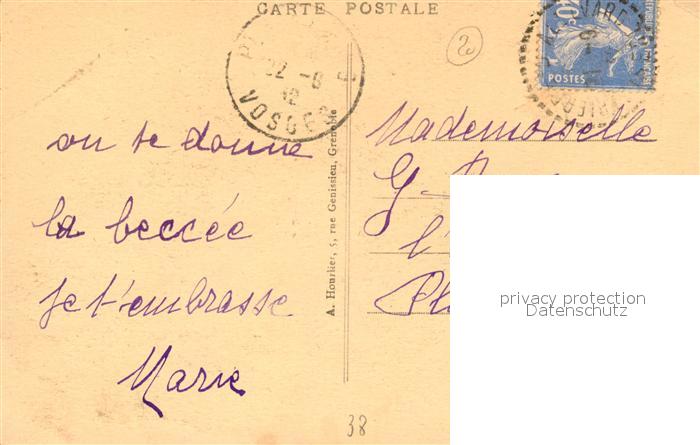 CARTE POSTALE
22 -8
VOSGES
POSTES
on se donne
la beccée
je t'embrasse
Marie
A. Hourlier, 5, rue Génissieu, Grenoble
Mademoiselle
G
l'
Pl
privacy protection
Datenschutz
38